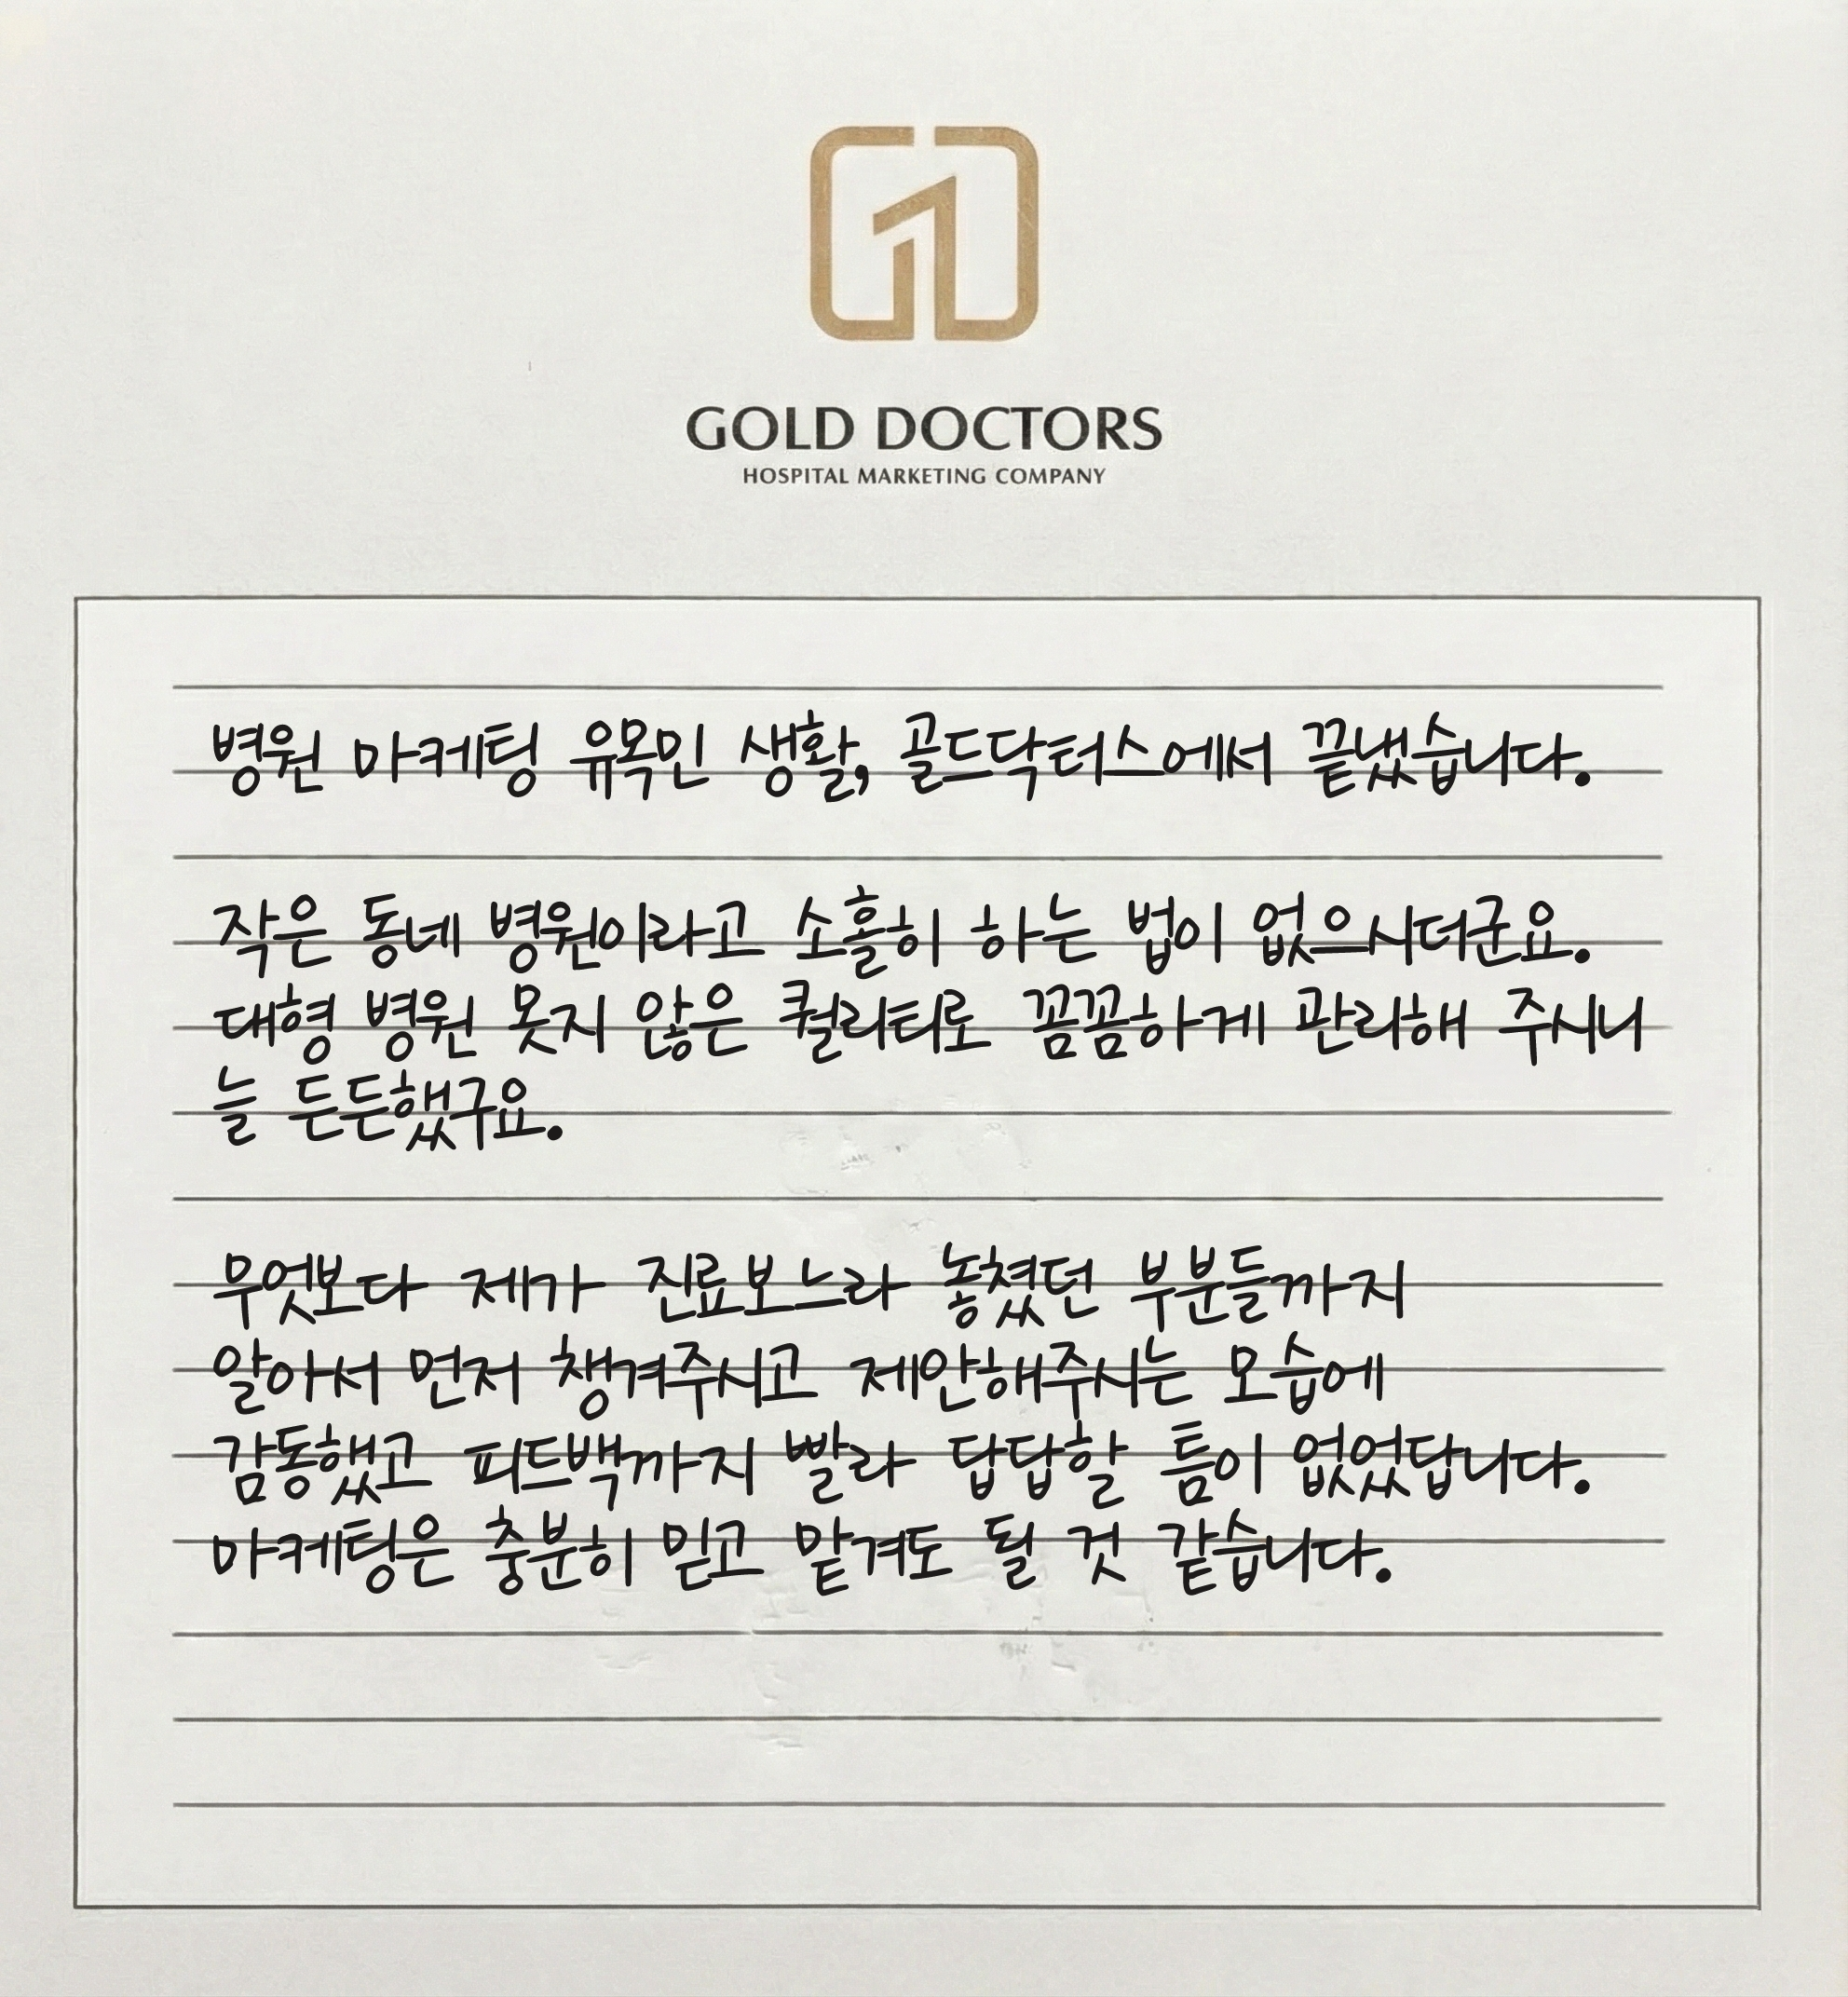 GOLD DOCTORS
HOSPITAL MARKETING COMPANY
병원 마케팅 유목민 생활, 골드닥터스에서 끝냈습니다.
작은 동네 병원이라고 소홀히 하는 법이 없으시더군요.
대형 병원 못지 않은 퀄리티로 꼼꼼하게 관리해 주시니
늘 든든했구요.
무엇보다 제가 진료보느라 놓쳤던 부분들까지
알아서 먼저 챙겨주시고 제안해주시는 모습에
감동했고 피드백까지 빨라 답답할 틈이 없었답니다.
마케팅은 충분히 믿고 맡겨도 될 것 같습니다.